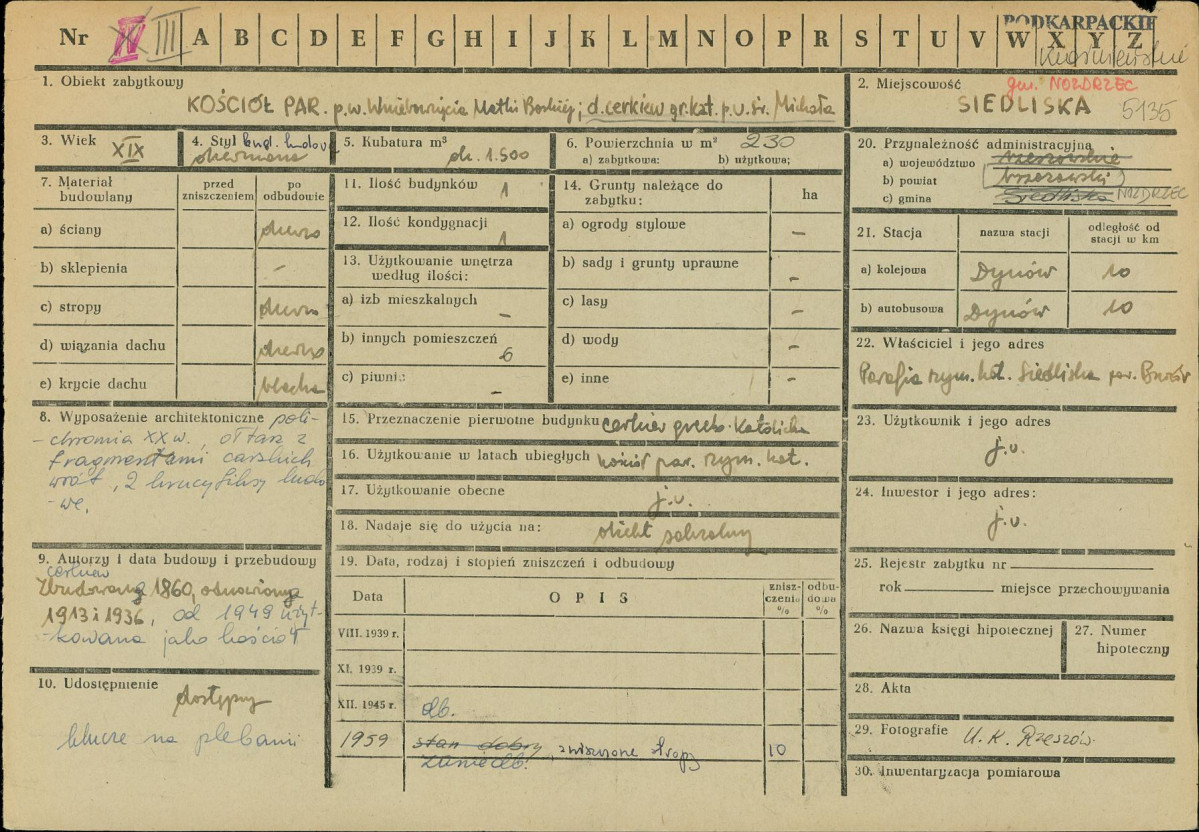 Nr IV III A B C D E F G H I J K L M N O P R S T U V W X Y Z
PODKARPACKIE
1. Obiekt zabytkowy
KOŚCIÓŁ PAR. p.w. Wniebowzięcia Matki Boskiej; d. cerkiew gr. kat. p.w. św. Michała
2. Miejscowość gm. NOZDRZEC
SIEDLISKA 5135
3. Wiek XIX
4. Styl
5. Kubatura m³
ok. 1.500
6. Powierzchnia w m² 230
a) zabytkowa: b) użytkowa;
20. Przynależność administracyjna
a) województwo rzeszowskie
b) powiat brzozowski
c) gmina Siedliska NOZDRZEC
7. Materiał budowlany
przed zniszczeniem
po odbudowie
a) ściany drewno
b) sklepienia –
c) stropy drewno
d) wiązania dachu drewno
e) krycie dachu blacha
11. Ilość budynków 1
12. Ilość kondygnacji 1
13. Użytkowanie wnętrza
według ilości:
a) izb mieszkalnych –
b) innych pomieszczeń 6
c) piwni.: –
14. Grunty należące do
zabytku:
ha
a) ogrody stylowe –
b) sady i grunty uprawne –
c) lasy –
d) wody –
e) inne –
21. Stacja
nazwa stacji
odległość od
stacji w km
a) kolejowa Dynów 10
b) autobusowa Dynów 10
22. Właściciel i jego adres
Parafia rzym. kat. Siedliska
23. Użytkownik i jego adres
j.w.
24. Inwestor i jego adres:
j.w.
8. Wyposażenie architektoniczne poli-
-chromia XX w., ołtarz z
fragmentami carskich
wrót, 2 krucyfiksy ludo-
-we.
15. Przeznaczenie pierwotne budynku cerkiew grecko-katolicka
16. Użytkowanie w latach ubiegłych kościół par. rzym. kat.
17. Użytkowanie obecne
j.w.
18. Nadaje się do użycia na: obiekt sakralny
9. Autorzy i data budowy i przebudowy
cerkiew
Zbudowana 1860, odnowiona
1913 i 1936, od 1949 użyt-
-kowana jako kościół
10. Udostępnienie
dostępny
klucze na plebanii
19. Data, rodzaj i stopień zniszczeń i odbudowy
Data
OPIS
znisz-
czenia
%
odbu-
dowa
%
VIII. 1939 r.
XI. 1939 r.
XII. 1945 r. db.
1959 stan dobry, zniszczone stropy 10
zaniedb.
25. Rejestr zabytku nr
rok miejsce przechowywania
26. Nazwa księgi hipotecznej
27. Numer
hipoteczny
28. Akta
29. Fotografie U.K. Rzeszów
30. Inwentaryzacja pomiarowa